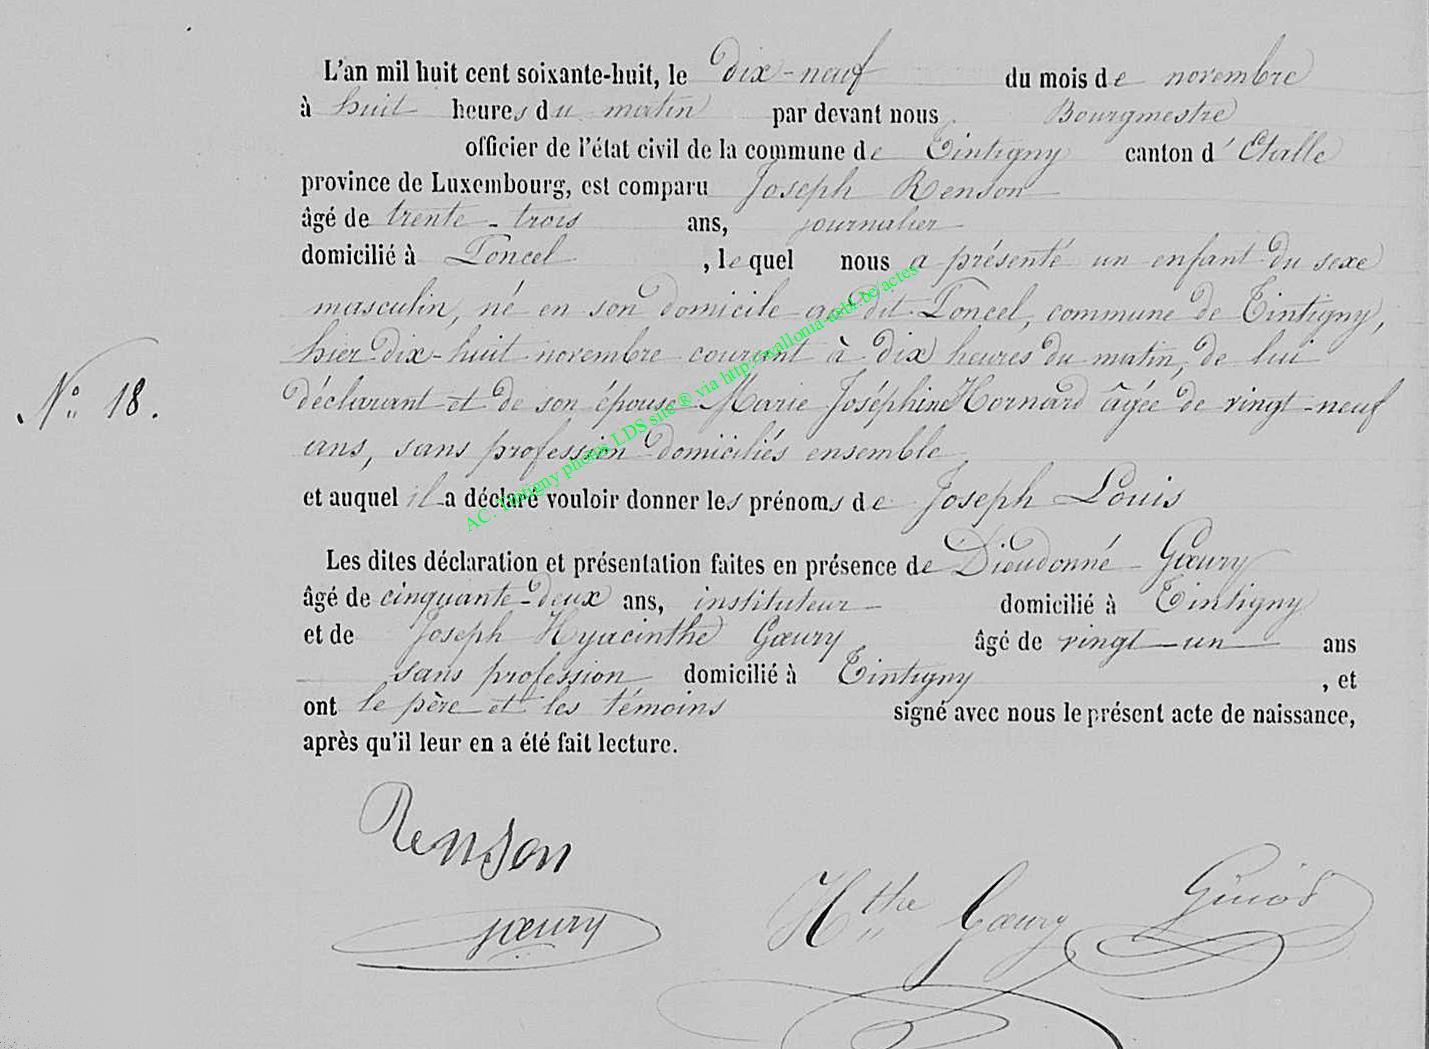 L'an mil huit cent soixante-huit, le dix-neuf du mois de novembre
à huit heures du matin par devant nous Bourgmestre
officier de l'état civil de la commune de Tintigny canton d'Etalle
province de Luxembourg, est comparu Joseph Renson
âgé de trente-trois ans, journalier
domicilié à Poncel, lequel nous a présenté un enfant du sexe
masculin, né en son domicile au dit Poncel, commune de Tintigny,
hier dix-huit novembre courant à dix heures du matin, de lui
N° 18. déclarant et de son épouse Marie Joséphine Hornard âgée de vingt-neuf
ans, sans profession domiciliés ensemble
et auquel il a déclaré vouloir donner les prénoms de Joseph Louis
Les dites déclaration et présentation faites en présence de Dieudonné Gœury
âgé de cinquante-deux ans, instituteur domicilié à Tintigny
et de Joseph Hyacinthe Gœury âgé de vingt-un ans
sans profession domicilié à Tintigny, et
ont le père et les témoins signé avec nous le présent acte de naissance,
après qu'il leur en a été fait lecture.
Renson
Gœury
Hthe Gœury
AC. Tintigny photos LDS site ® via http://wallonia-asbl.be/actes